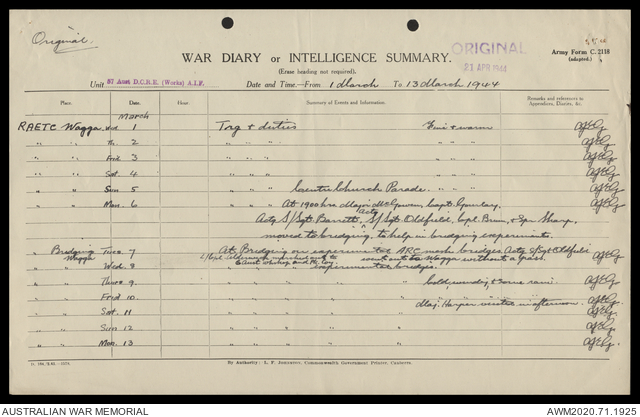 Original.
WAR DIARY or INTELLIGENCE SUMMARY.
(Erase heading not required).
ORIGINAL
21 APR 1944
Army Form C. 2118
(adapted.)
Unit 57 Aust D.C.R.E. (Works) A.I.F.
Date and Time—From 1 March To 13 March 1944
Place. Date. Hour. Summary of Events and Information. Remarks and references to Appendices, Diaries, &c.
March
RAETC Wagga Wed 1 Trg & duties Fine & warm
" " Th. 2 " " " " " "
" " Frid 3 " " " " " "
" " Sat. 4 " " " " " "
" " Sun 5 " " " Centre Church Parade. " " "
" " Mon. 6 " " " At 1900 hrs Major McGowen, Capt.
Actg S/Sgt. Barrett, Actg S/Sgt Oldfield, Cpl. & Spr Sharp,
moved to bridging, to help in bridging experiments.
Bridging Wagga Tues 7 At Bridging on experimental ARC mesh bridges. Actg S/Sgt Oldfield
went out to Wagga without a pass.
" Wed. 8 experimental bridges.
" " Thurs 9 " " " Cold, windy & some rain.
" " Frid 10 " " " Maj. Harper visited in afternoon.
" " Sat. 11 " " "
" " Sun 12 " " "
" " Mon. 13 " " "
By Authority: L. F. Johnston, Commonwealth Government Printer, Canberra.
AUSTRALIAN WAR MEMORIAL
AWM2020.71.1925